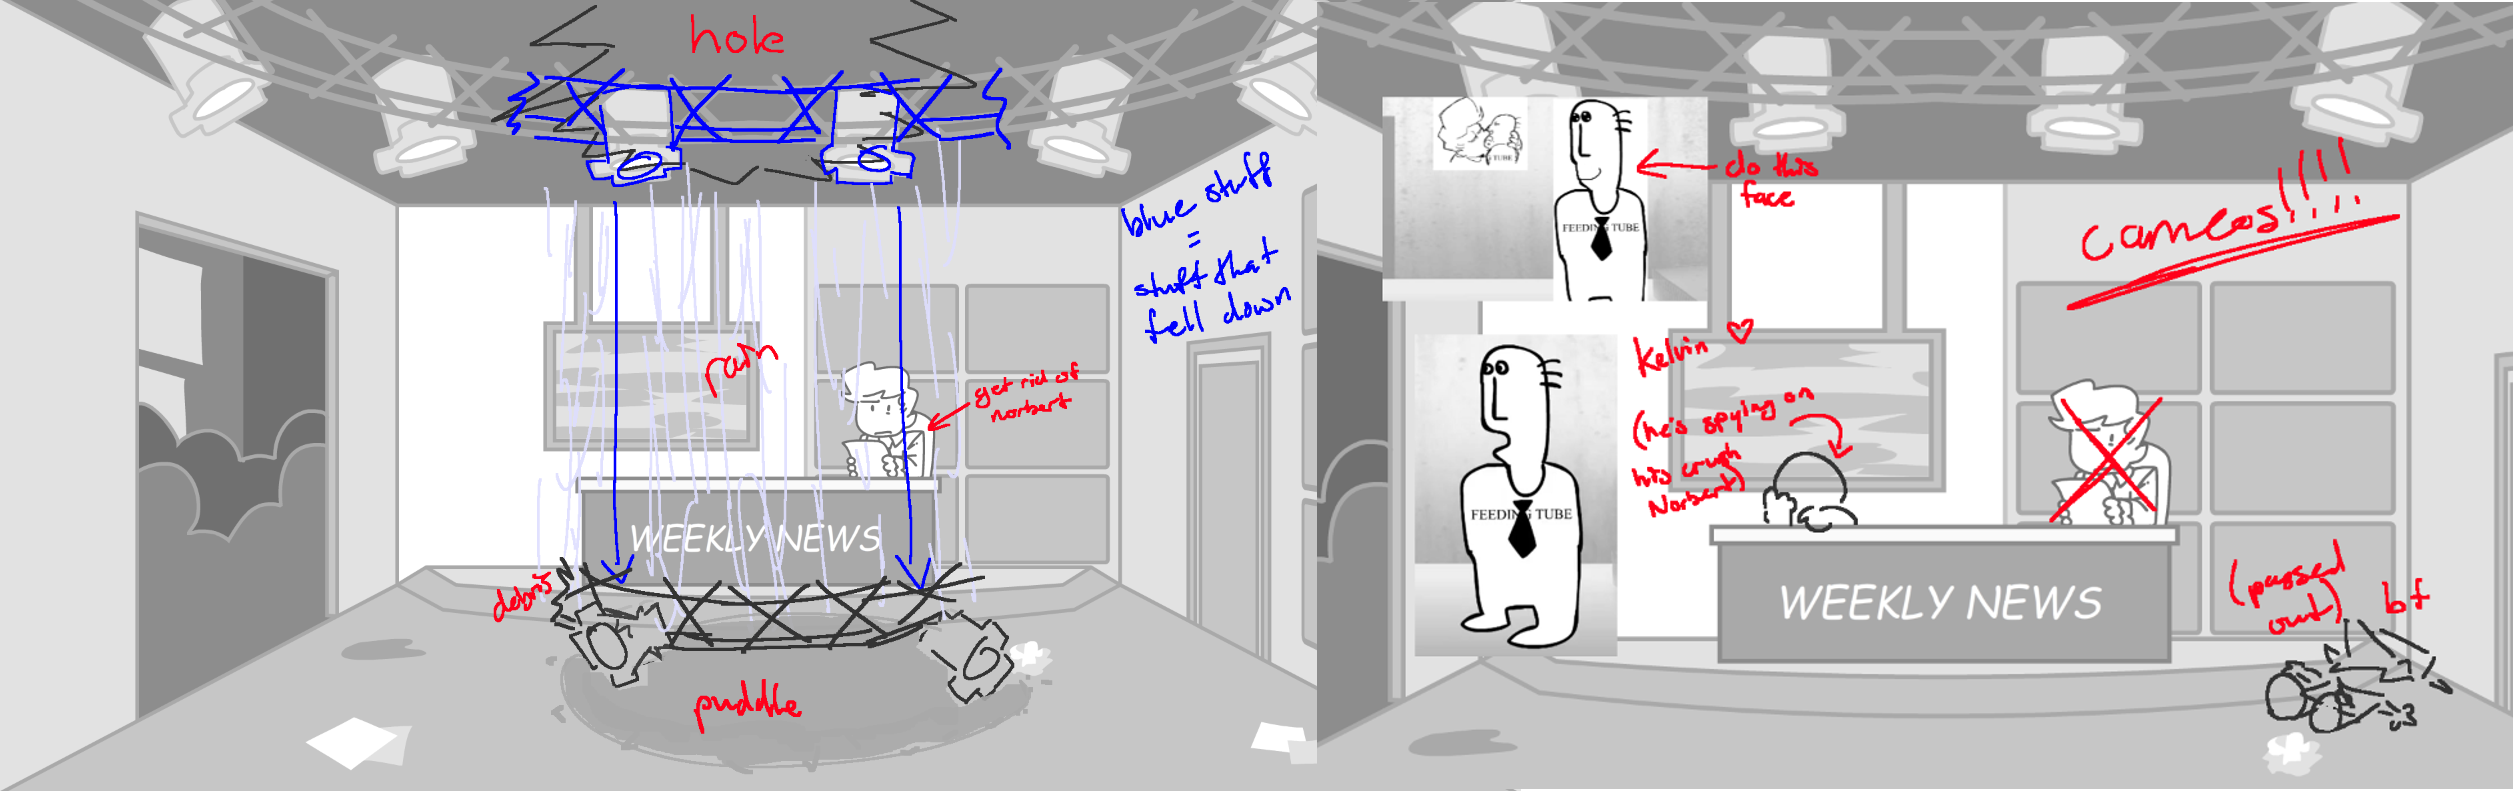 hole
blue stuff
=
stuff that
fell down
rain
get rid of
norbert
WEEKLY NEWS
debris
puddle
TUBE
do this
face
FEEDING TUBE
cameos!!!!
Kelvin
(he's spying on
his crush
Norbert)
FEEDING TUBE
WEEKLY NEWS
(passed
out)
bf